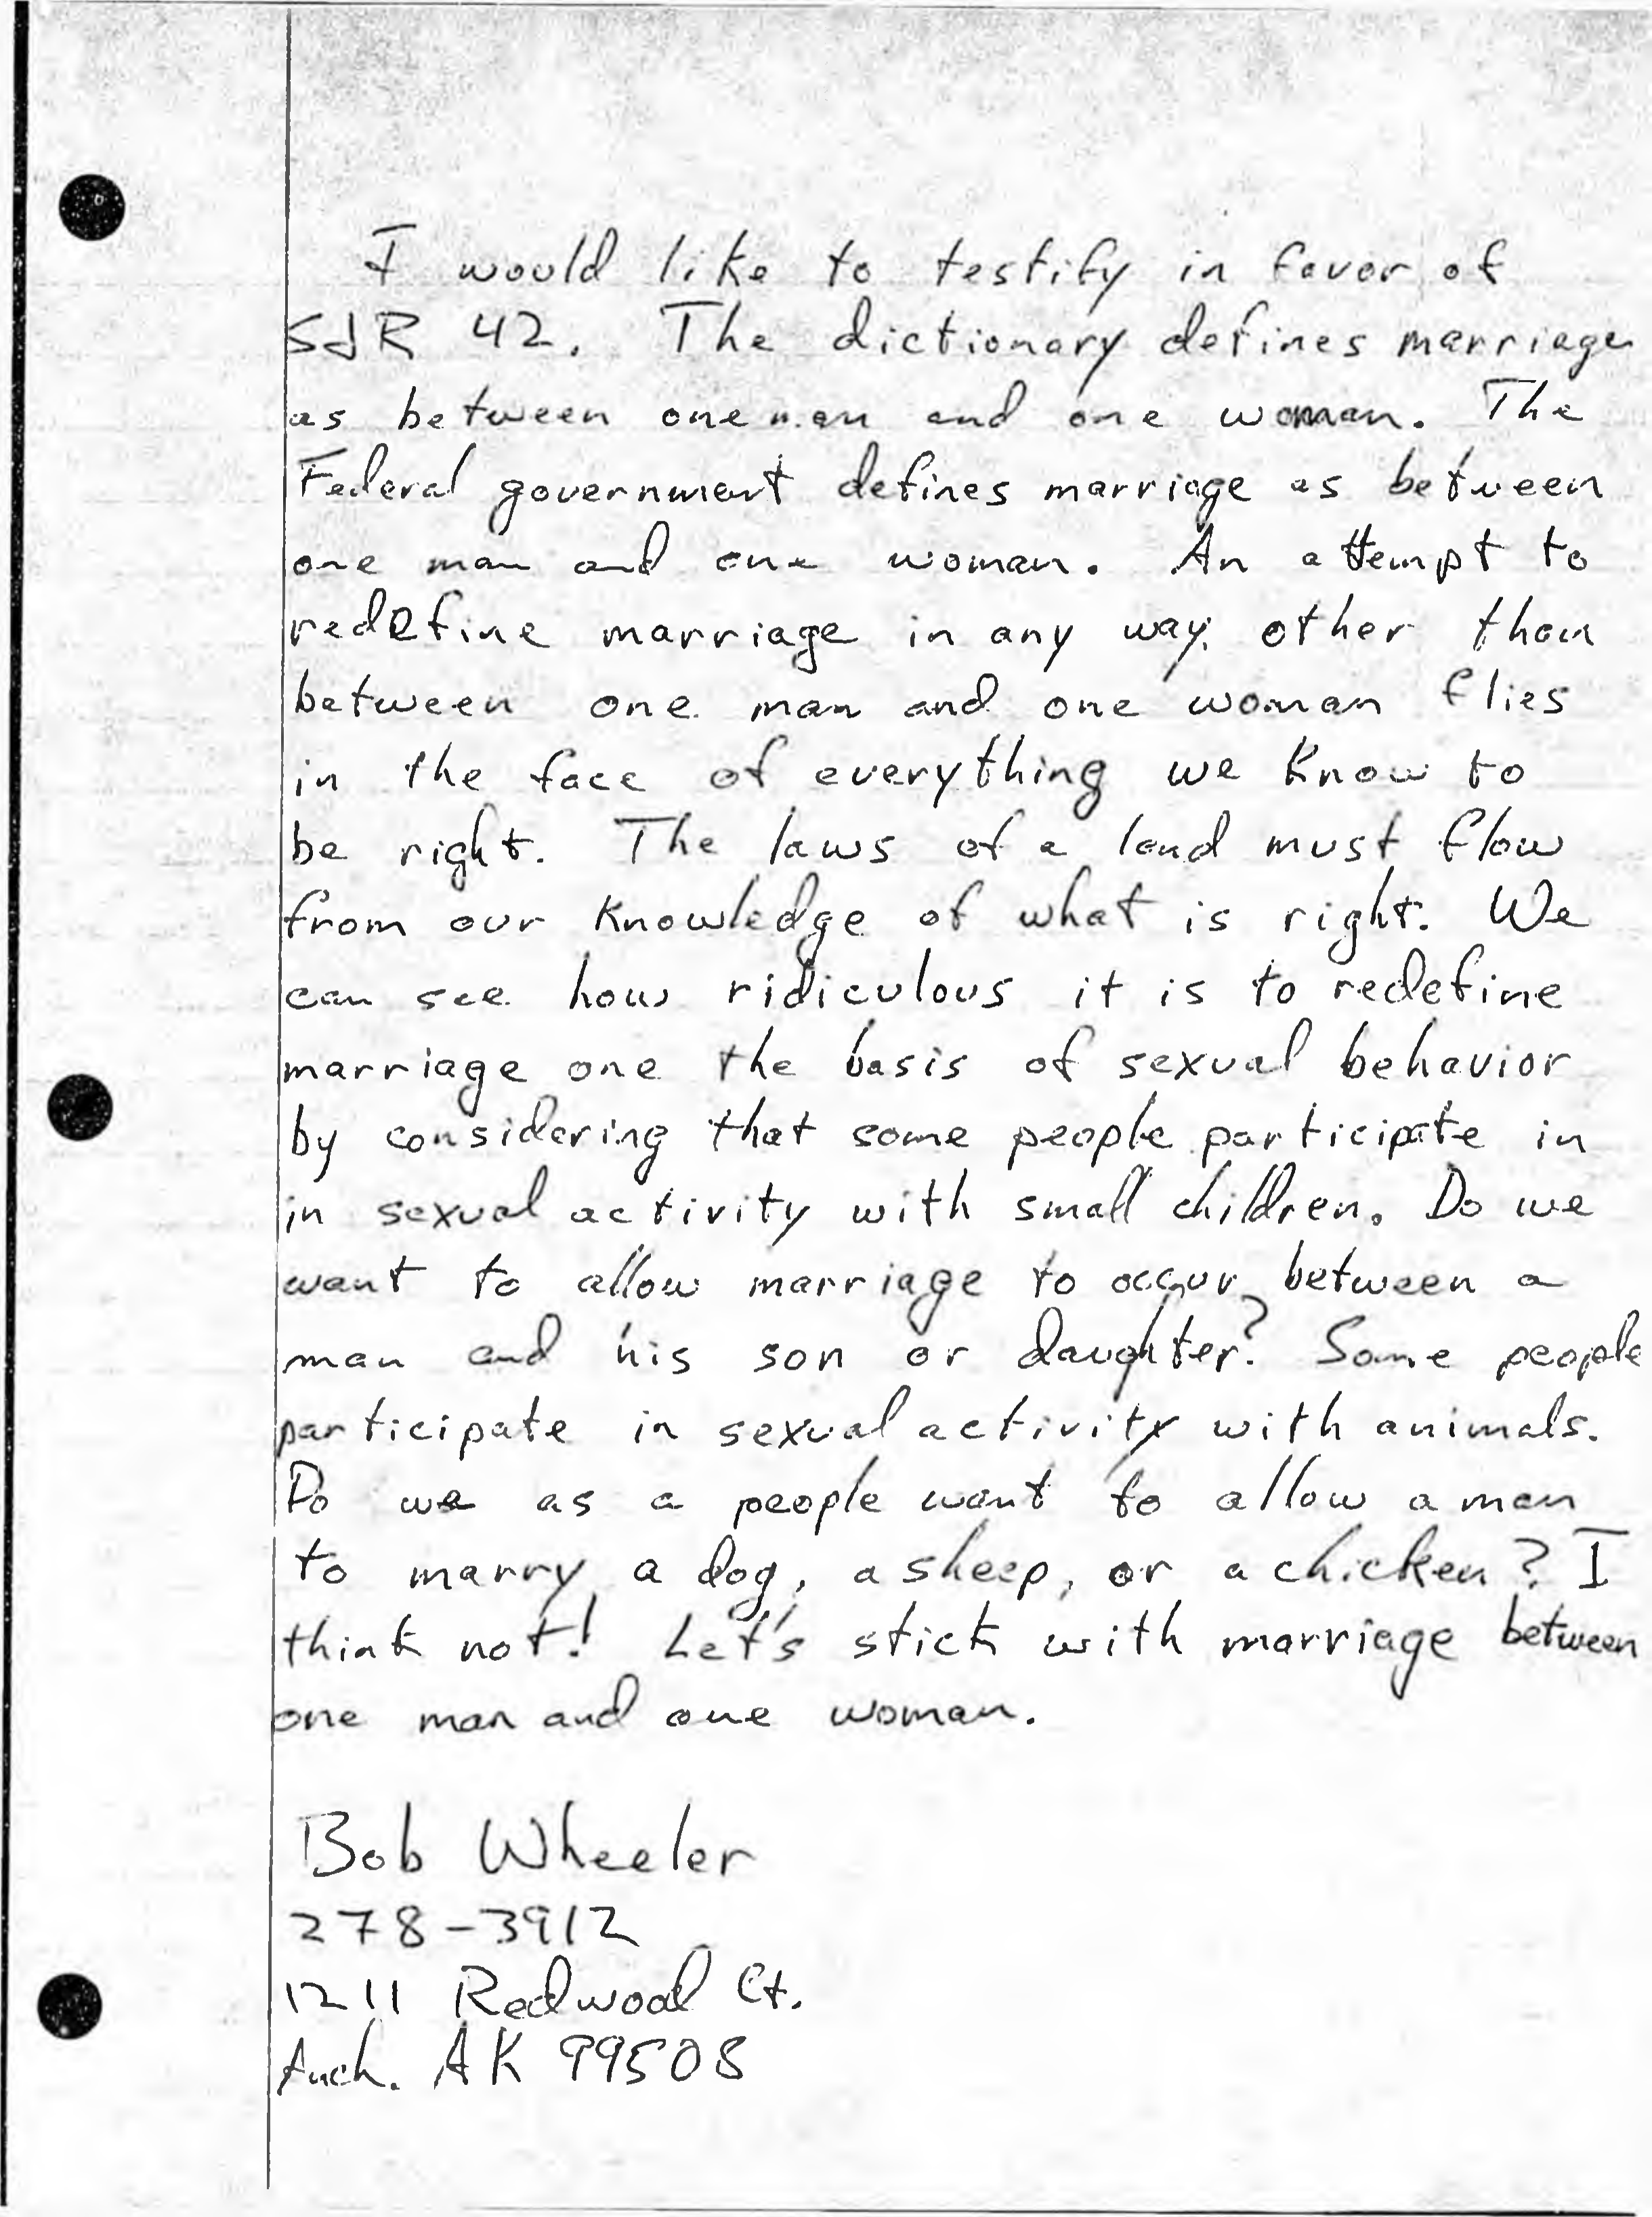 I would like to testify in favor of
SJR 42. The dictionary defines marriage
as between one man and one woman. The
Federal government defines marriage as between
one man and one woman. An attempt to
redefine marriage in any way other than
between one man and one woman flies
in the face of everything we know to
be right. The laws of a land must flow
from our knowledge of what is right. We
can see how ridiculous it is to redefine
marriage one the basis of sexual behavior
by considering that some people participate in
in sexual activity with small children. Do we
want to allow marriage to occur between a
man and his son or daughter? Some people
participate in sexual activity with animals.
Do we as a people want to allow a man
to marry a dog, a sheep, or a chicken? I
think not! Let's stick with marriage between
one man and one woman.
Bob Wheeler
278-3912
1211 Redwood Ct.
Anch. AK 99508